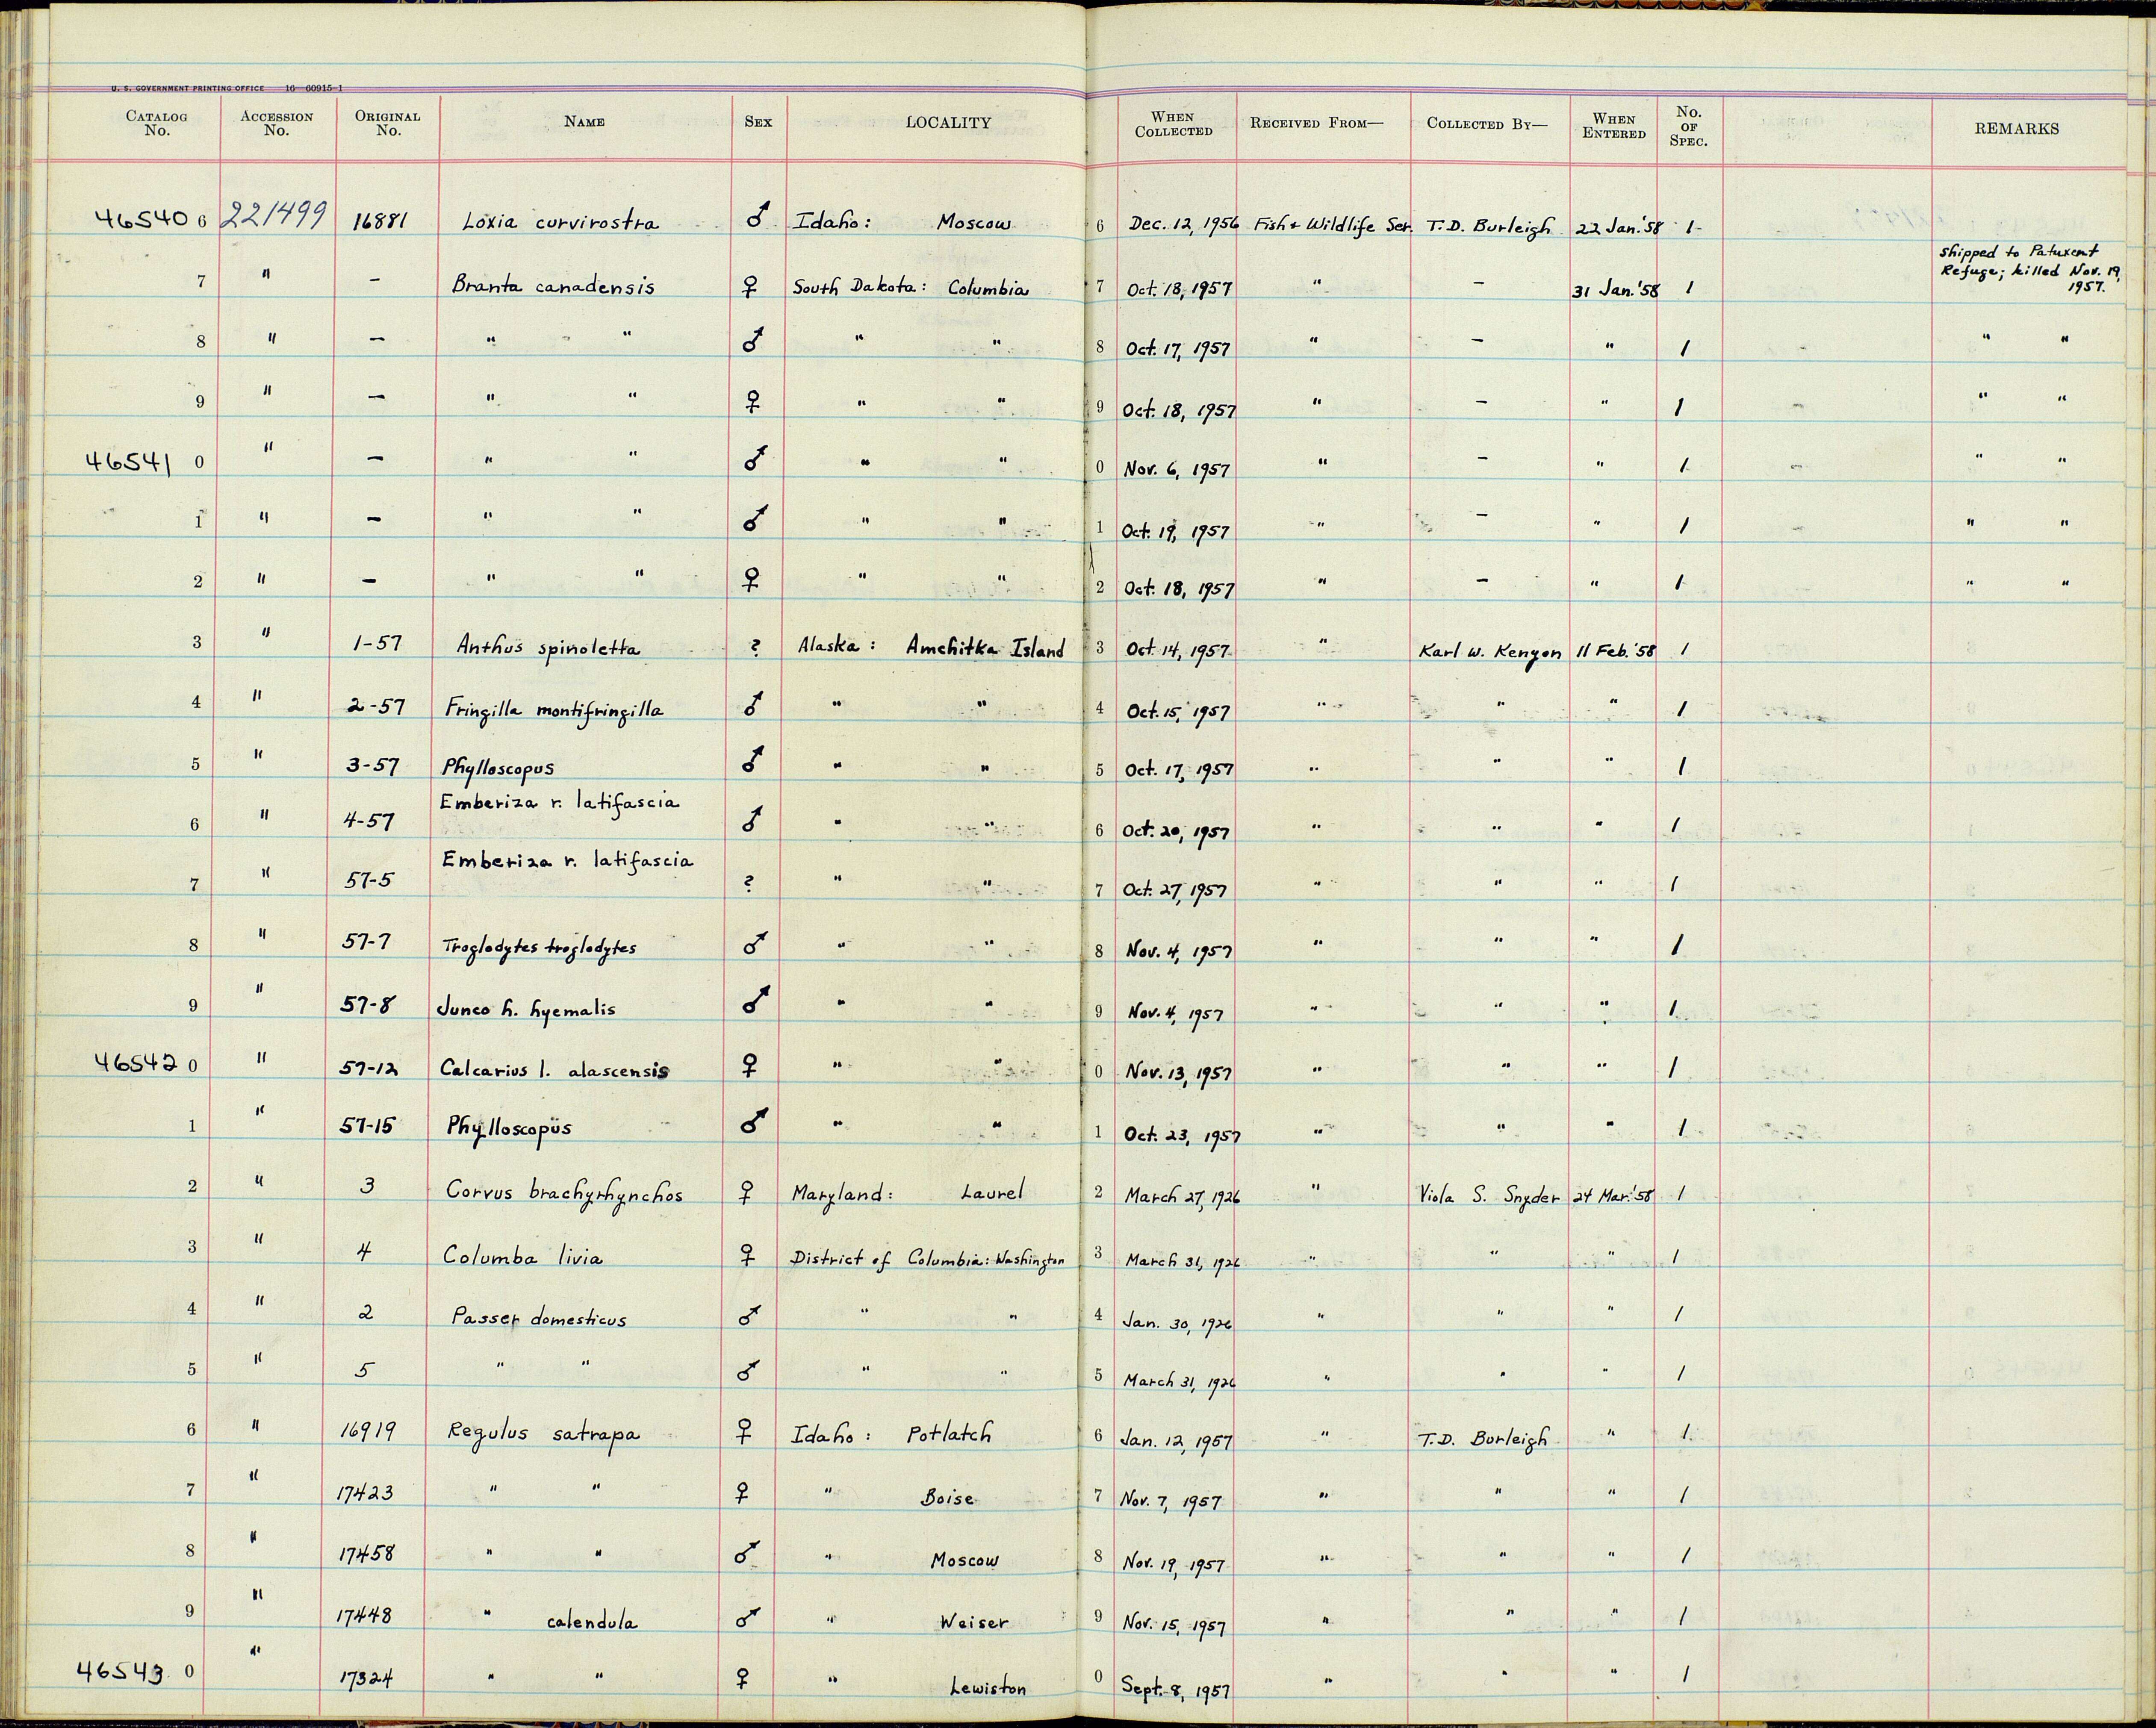 U. S. GOVERNMENT PRINTING OFFICE 16—60915-1
CATALOG No. ACCESSION No. ORIGINAL No. NAME SEX LOCALITY WHEN COLLECTED RECEIVED FROM— COLLECTED BY— WHEN ENTERED No. OF SPEC. REMARKS
46540 6 221499 16881 Loxia curvirostra ♂ Idaho: Moscow 6 Dec. 12, 1956 Fish & Wildlife Ser. T.D. Burleigh 22 Jan. '58 1
7 " – Branta canadensis ♀ South Dakota: Columbia 7 Oct. 18, 1957 " – 31 Jan. '58 1 Shipped to Patuxent Refuge; killed Nov. 19, 1957.
8 " – " " ♂ " " 8 Oct. 17, 1957 " – " 1 " "
9 " – " " ♀ " " 9 Oct. 18, 1957 " – " 1 " "
46541 0 " – " " ♂ " " 0 Nov. 6, 1957 " – " 1 " "
1 " – " " ♂ " " 1 Oct. 19, 1957 " – " 1 " "
2 " – " " ♀ " " 2 Oct. 18, 1957 " – " 1 " "
3 " 1-57 Anthus spinoletta ? Alaska: Amchitka Island 3 Oct. 14, 1957 " Karl W. Kenyon 11 Feb. '58 1
4 " 2-57 Fringilla montifringilla ♂ " " 4 Oct. 15, 1957 " " " 1
5 " 3-57 Phylloscopus ♂ " " 5 Oct. 17, 1957 " " " 1
6 " 4-57 Emberiza r. latifascia ♂ " " 6 Oct. 20, 1957 " " " 1
7 " 57-5 Emberiza r. latifascia ? " " 7 Oct. 27, 1957 " " " 1
8 " 57-7 Troglodytes troglodytes ♂ " " 8 Nov. 4, 1957 " " " 1
9 " 57-8 Junco h. hyemalis ♂ " " 9 Nov. 4, 1957 " " " 1
46542 0 " 57-12 Calcarius l. alascensis ♀ " " 0 Nov. 13, 1957 " " " 1
1 " 57-15 Phylloscopus ♂ " " 1 Oct. 23, 1957 " " " 1
2 " 3 Corvus brachyrhynchos ♀ Maryland: Laurel 2 March 27, 1926 " Viola S. Snyder 24 Mar. '58 1
3 " 4 Columba livia ♀ District of Columbia: Washington 3 March 31, 1926 " " " 1
4 " 2 Passer domesticus ♂ " " 4 Jan. 30, 1926 " " " 1
5 " 5 " " ♂ " " 5 March 31, 1926 " " " 1
6 " 16919 Regulus satrapa ♀ Idaho: Potlatch 6 Jan. 12, 1957 " T.D. Burleigh " 1
7 " 17423 " " ♀ " Boise 7 Nov. 7, 1957 " " " 1
8 " 17458 " " ♂ " Moscow 8 Nov. 19, 1957 " " " 1
9 " 17448 " calendula ♂ " Weiser 9 Nov. 15, 1957 " " " 1
46543 0 " 17324 " " ♀ " Lewiston 0 Sept. 8, 1957 " " " 1